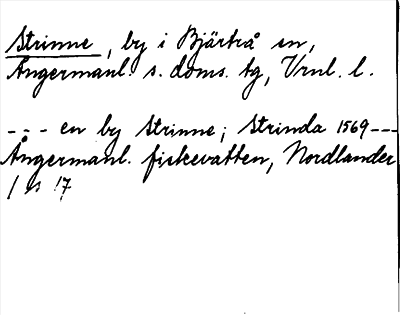 Strinne, by i Bjärtrå sn,
Ångermanl. s. doms. tg, Vrnl. l.
--- en by Strinne; Strinda 1569---
Ångermanl. fiskevatten, Nordlander
17